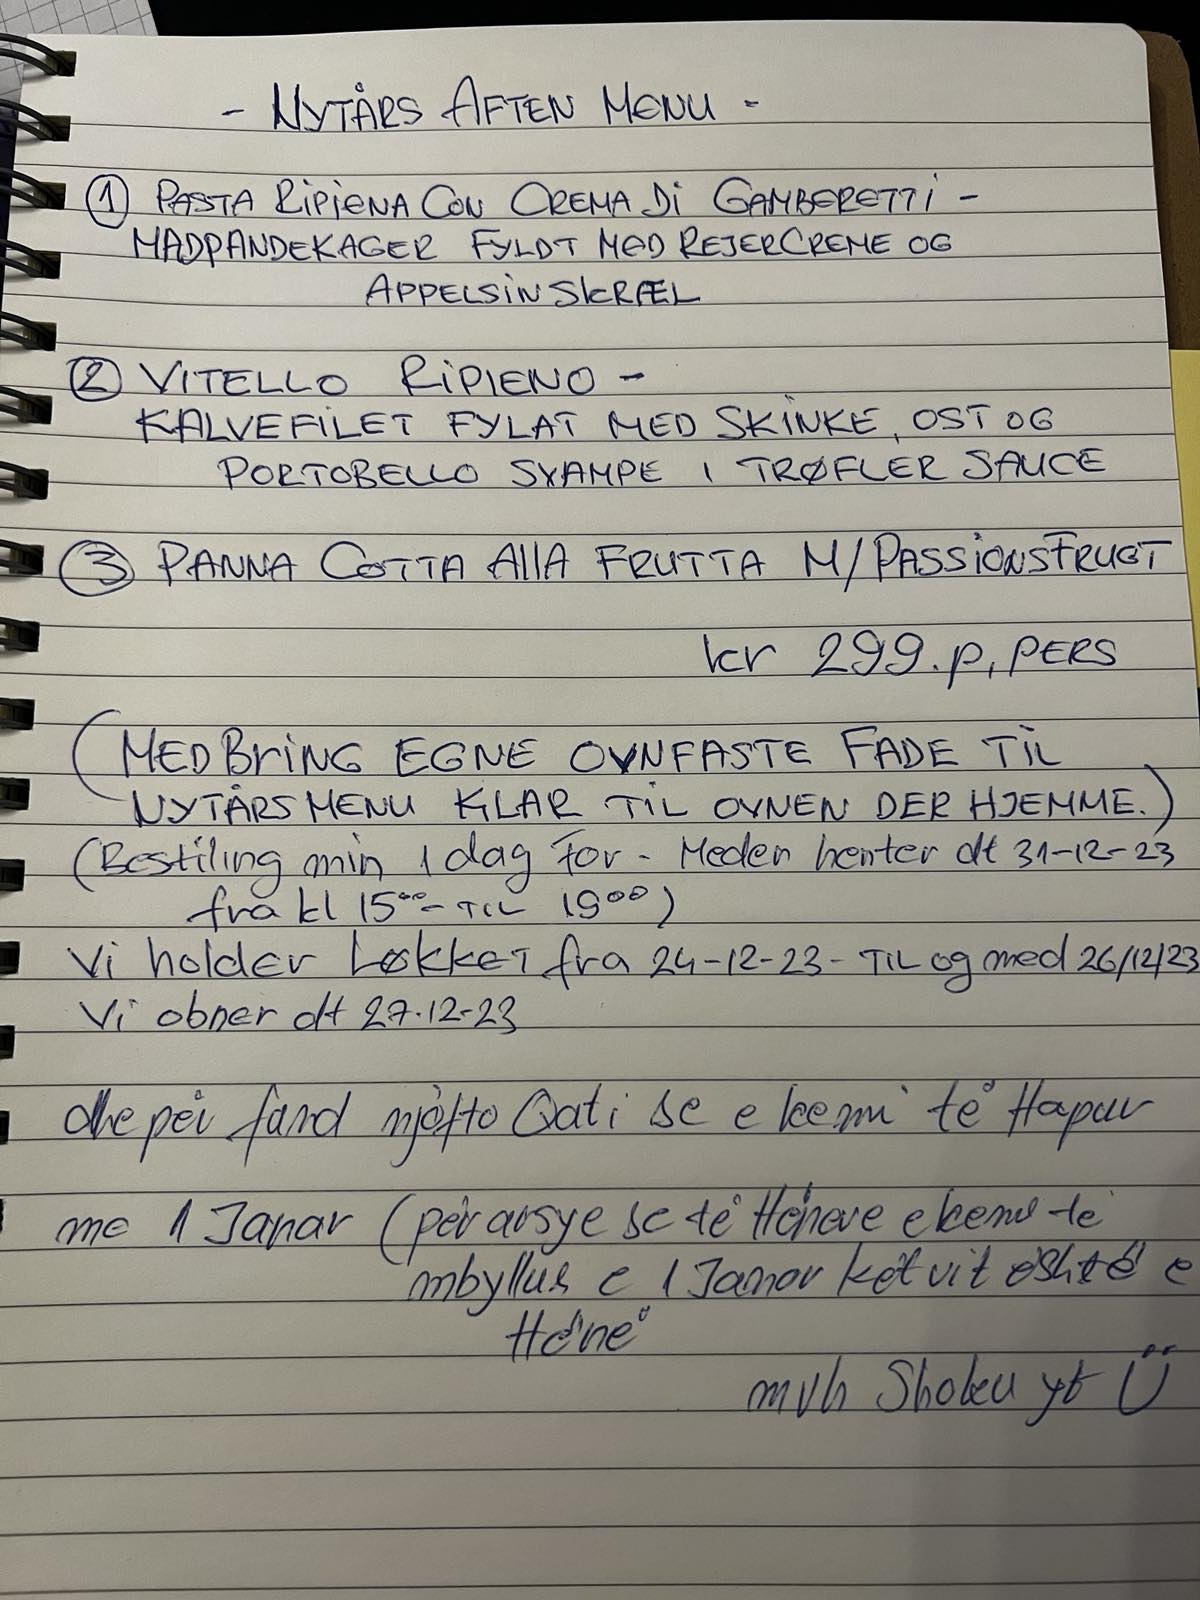 - NYTÅRS AFTEN MENU -
① PASTA RIPIENA CON CREMA DI GAMBERETTI -
MADPANDEKAGER FYLDT MED REJERCREME OG
APPELSINSKRÆL
② VITELLO RIPIENO -
KALVEFILET FYLAT MED SKINKE, OST OG
PORTOBELLO SVAMPE I TRØFLER SAUCE
③ PANNA COTTA AllA FRUTTA M/PASSIONSFRUGT
kr 299.p, PERS
(MEDBRING EGNE OVNFASTE FADE TIL
NYTÅRSMENU KLAR TIL OVNEN DER HJEMME.)
(Bestiling min 1 dag For - Meden henter dt 31-12-23
fra kl 15⁰⁰ - TIL 19⁰⁰)
Vi holder Løkket fra 24-12-23 - TIL og med 26/12/23
Vi obner dt 27.12-23
dhe për fund njofto Qati se e kemi të Hapur
me 1 Janar (për arsye se të Hënave e kemi të
mbyllur e 1 Janar ket vit është e
Hënë
mvh Shoku yt Ü